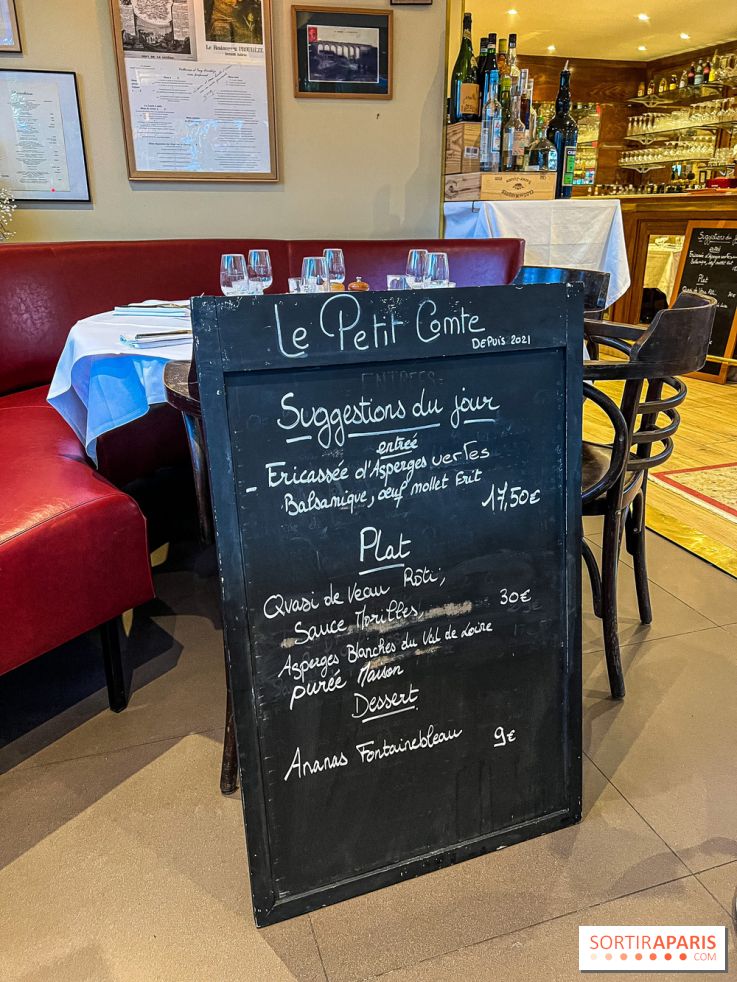 Le Petit Comte
DEPUIS 2021
Suggestions du jour
entrée
- Fricassée d'Asperges vertes
Balsamique, œuf mollet Frit
17,50€
Plat
Quasi de Veau Rôti,
Sauce Morilles,
30€
Asperges Blanches du Val de Loire
purée Maison
Dessert
Ananas Fontainebleau
9€
Suggestions du jour
entrée
Plat
SORTIRAPARIS
.COM